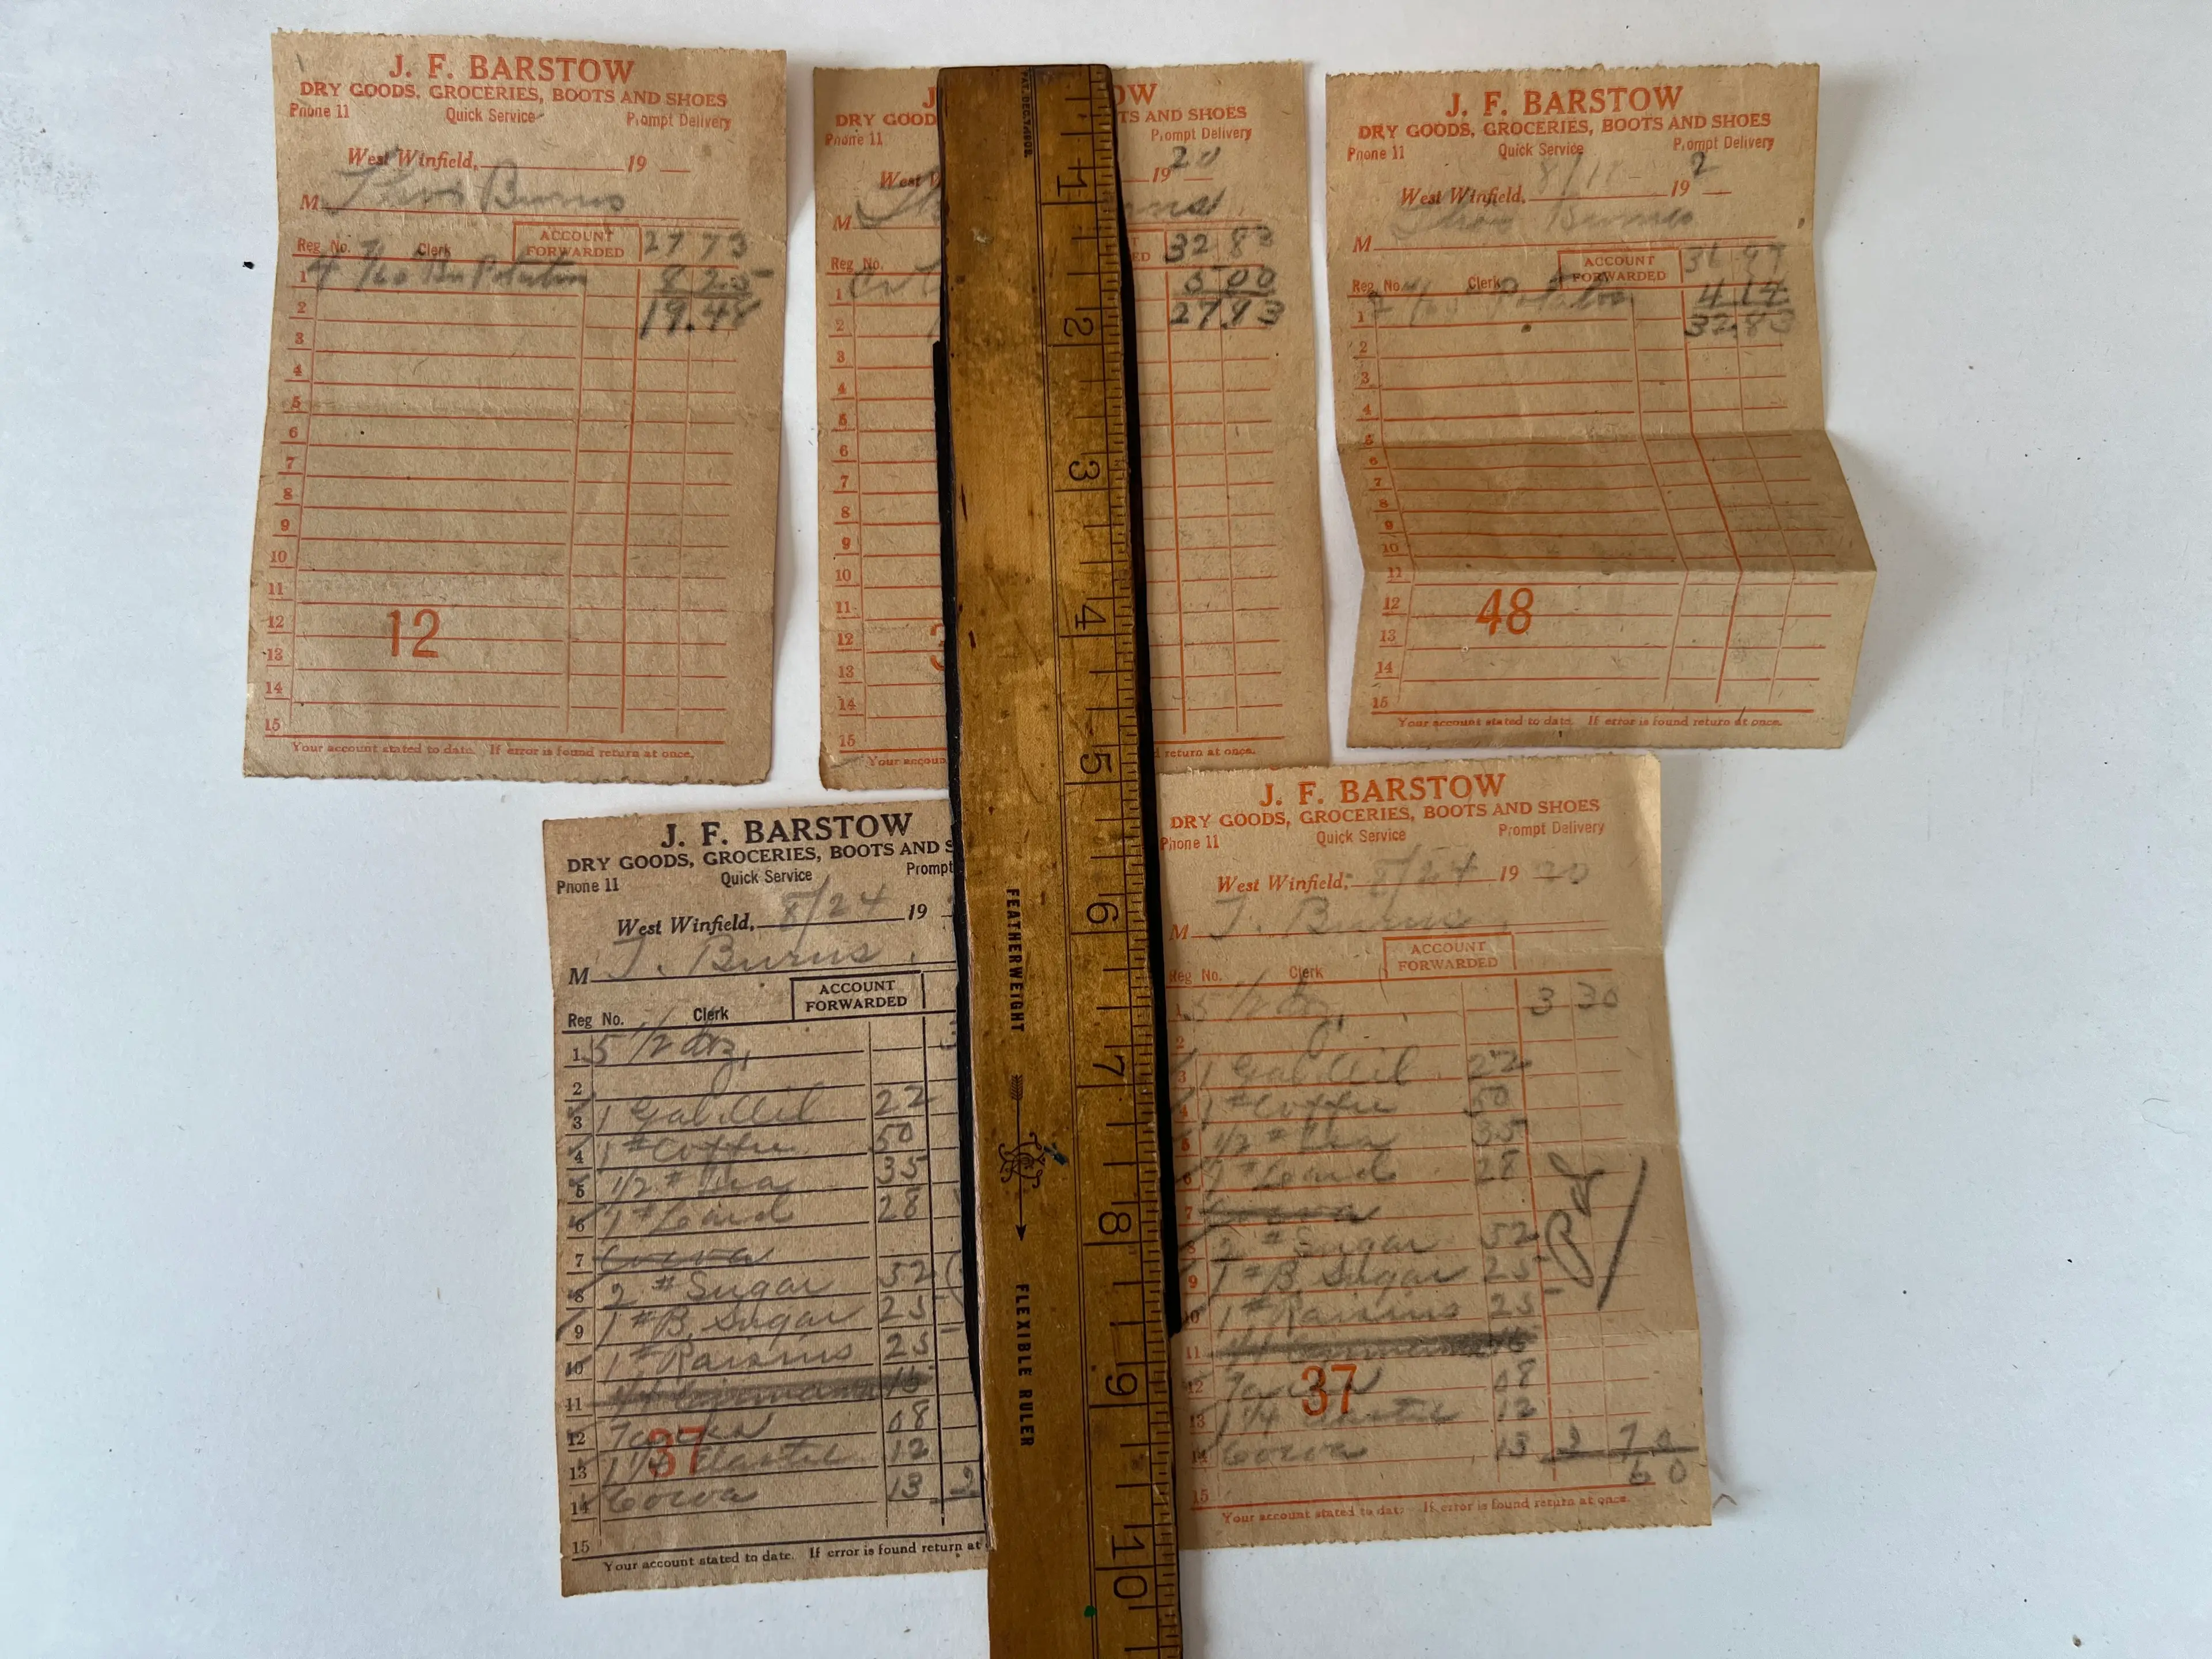 J. F. BARSTOW
DRY GOODS, GROCERIES, BOOTS AND SHOES
Phone 11 Quick Service Prompt Delivery
West Winfield, 19
M Burns
Reg No. Clerk ACCOUNT FORWARDED 27 73
1 4 8 25
2 19.48
3
4
5
6
7
8
9
10
11
12
12
13
14
15
Your account stated to date. If error is found return at once.
J OW
DRY GOOD TS AND SHOES
Phone 11 Prompt Delivery
West W 19 20
M
Reg No. ED 32 83
1 5 00
2 27.83
3
4
5
6
7
8
9
10
11
12 3
13
14
15
Your accoun d return at once.
J. F. BARSTOW
DRY GOODS, GROCERIES, BOOTS AND SHOES
Phone 11 Quick Service Prompt Delivery
West Winfield, 19 2
M Burns
Reg No. Clerk ACCOUNT FORWARDED 36 97
1 4 14
32.83
2
3
4
5
6
7
8
9
10
11
12 48
13
14
15
Your account stated to date. If error is found return at once.
J. F. BARSTOW
DRY GOODS, GROCERIES, BOOTS AND S
Phone 11 Quick Service Prompt
West Winfield, 8/24 19
M T. Burns
Reg No. Clerk ACCOUNT FORWARDED
1 5 1/2 dz,
2
3 1 Gal. Oil 22
4 1 # Coffee 50
5 1/2 # Tea 35
6 1 # Lard 28
7 Cocoa
8 2 # Sugar 52
9 1 # B. Sugar 25
10 1 # Raisins 25
11 1/4 Cinnamon 15
12 08
37
13 1 1/4 Elastic 12
14 Cocoa 13 2
15
Your account stated to date. If error is found return at
J. F. BARSTOW
DRY GOODS, GROCERIES, BOOTS AND SHOES
Phone 11 Quick Service Prompt Delivery
West Winfield, 8/24 19 20
M T. Burns
Reg No. Clerk ACCOUNT FORWARDED
1 5 1/2 dz, 3 30
2
3 1 Gal. Oil 22
4 1 # Coffee 50
5 1/2 # Tea 35
6 1 # Lard 28
7 Cocoa
8 2 # Sugar 52
9 1 # B. Sugar 25
Pd
10 1 # Raisins 25
11 1/4 Cinnamon 15
12 08
37
13 1 1/4 Elastic 12
14 Cocoa 13 2 70
60
15
Your account stated to date. If error is found return at once.
1
2
3
4
5
6
7
8
9
10
FEATHERWEIGHT
FLEXIBLE RULER